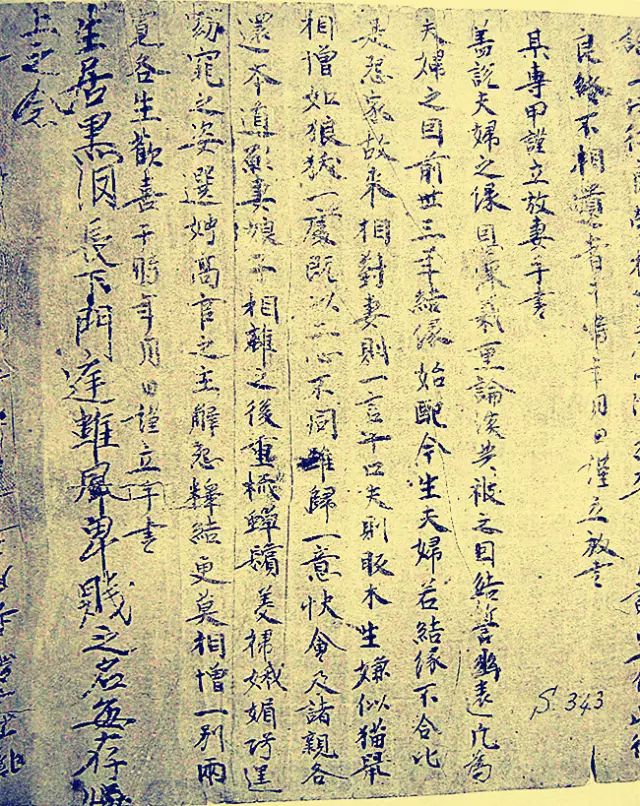 良終不相遺者于時年月日謹立放書
某專甲謹立放妻手書
盖說夫婦之緣恩深義重論談共被之因結誓幽遠凡為
夫婦之因前世三年結緣始配今生夫婦若結緣不合比
是怨家故来相對妻則一言十口夫則木生嫌似猫鼠
相憎如狼犺一處既以二心不同難歸一意快會及諸親各
還本道願妻娘子相離之後重梳蟬鬢美掃娥媚巧逞
窈窕之姿選娉高官之主解怨釋結更莫相憎一別兩
寬各生歡喜于時年月日謹立手書
生居黑長下門庭雖卑賤之名每存
上之念
S.343